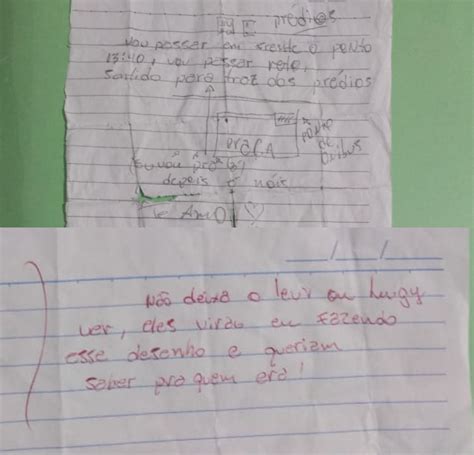 prédios
Vou passar em frente o ponto
13:40, vou passar reto,
sentido para traz dos prédios
PRAÇA
PONTO
DE
ônibus
depois é nóis
te Amo
Não deixa o levi ou luigy
ver, eles virão eu fazendo
esse desenho e queriam
saber pra quem era!